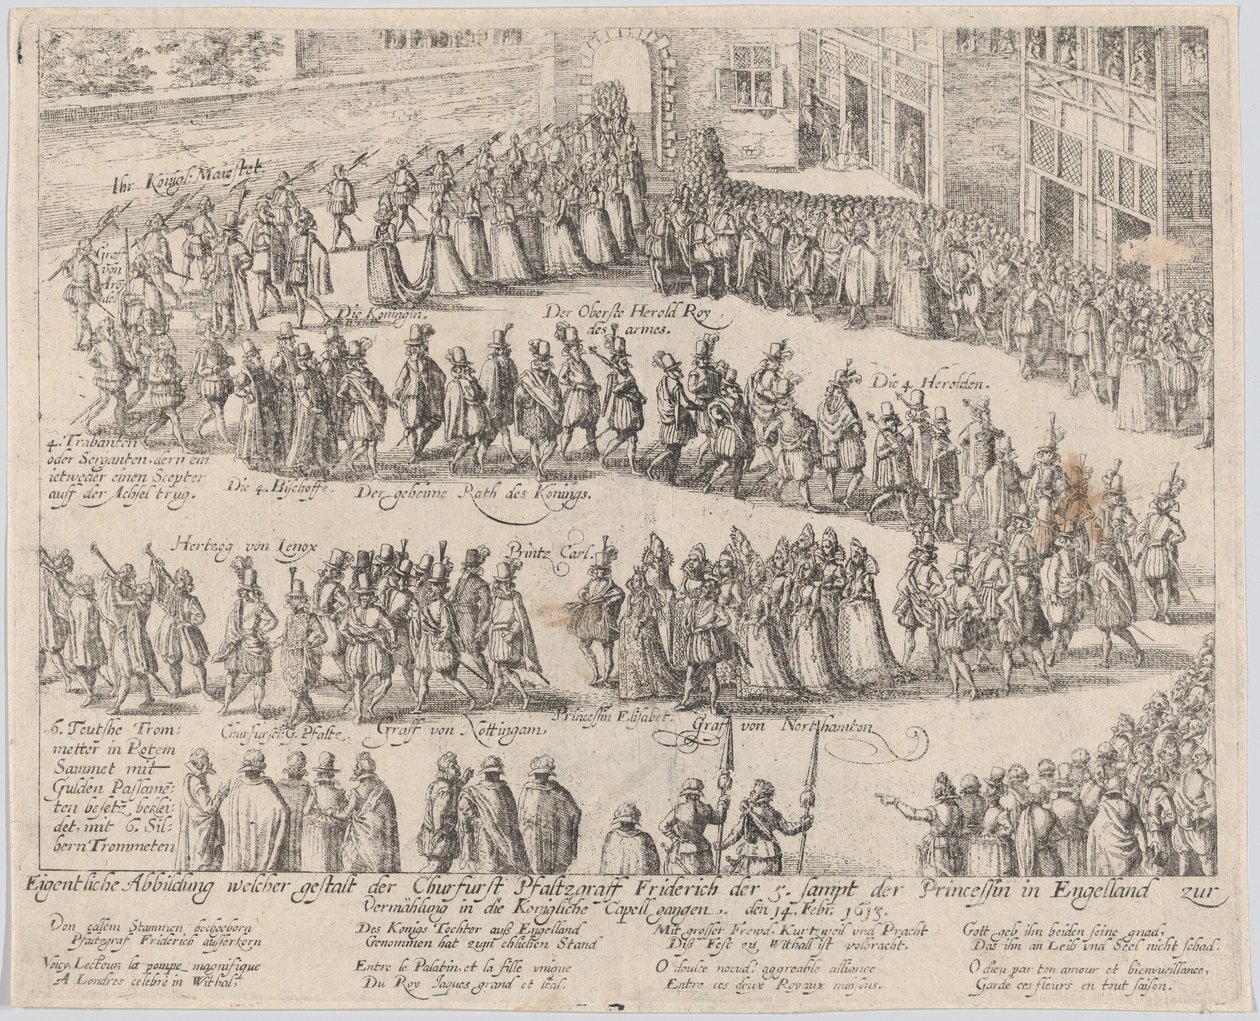 Ihr Königl: Maiestet
Graf
von
Die Königin.
Der Oberste Herold Roy
des armes.
Die 4. Herolden.
4. Trabanten
oder Serganten, dern ein
ietweder einen Scepter
auff der Achsel trug.
Die 4. Bischoffe.
Der geheime Rath des Königs.
Hertzog von Lenox
Printz Carl.
6. Teutshe Trom-
metter in Rotem
Sammet mit
Gulden Passame-
ten besetz, beklei-
det, mit 6. Sil-
bern Trommeten
Churfürst: G. Pfaltz.
Graff von Nottingam,
Princessin Elisabet.
Graf von Northamton
Eigentliche Abbildung welcher gestalt der Churfurst Pfaltzgraff Friderich der 5. sampt der Princessin in Engelland zur
Vermählung in die Königliche Capell gangen. den 14. Febr. 1613.
Von edlem Stammen hochgeborn
Pfaltzgraf Friderich ausserkorn
Des Königs Tochter auß Engelland
Genommen hat zum ehlichen Stand
Mit grosser Frewd, Kurtzweil und Pracht
Diß Fest zu Withall ist volbracht.
Gott geb ihn beiden seine gnad,
Das ihn an Leib und Seel nicht schad.
Voicy, Lecteur, la pompe magnifique
A Londres celebré in Withal,
Entre le Palatin, et la fille unique
Du Roy Jaques grand et leal.
O doulce noeud, aggreable alliance
Entre ces deux Royaux maisons.
O dieu par ton amour et bienvueillance,
Garde ces fleurs en tout saison.